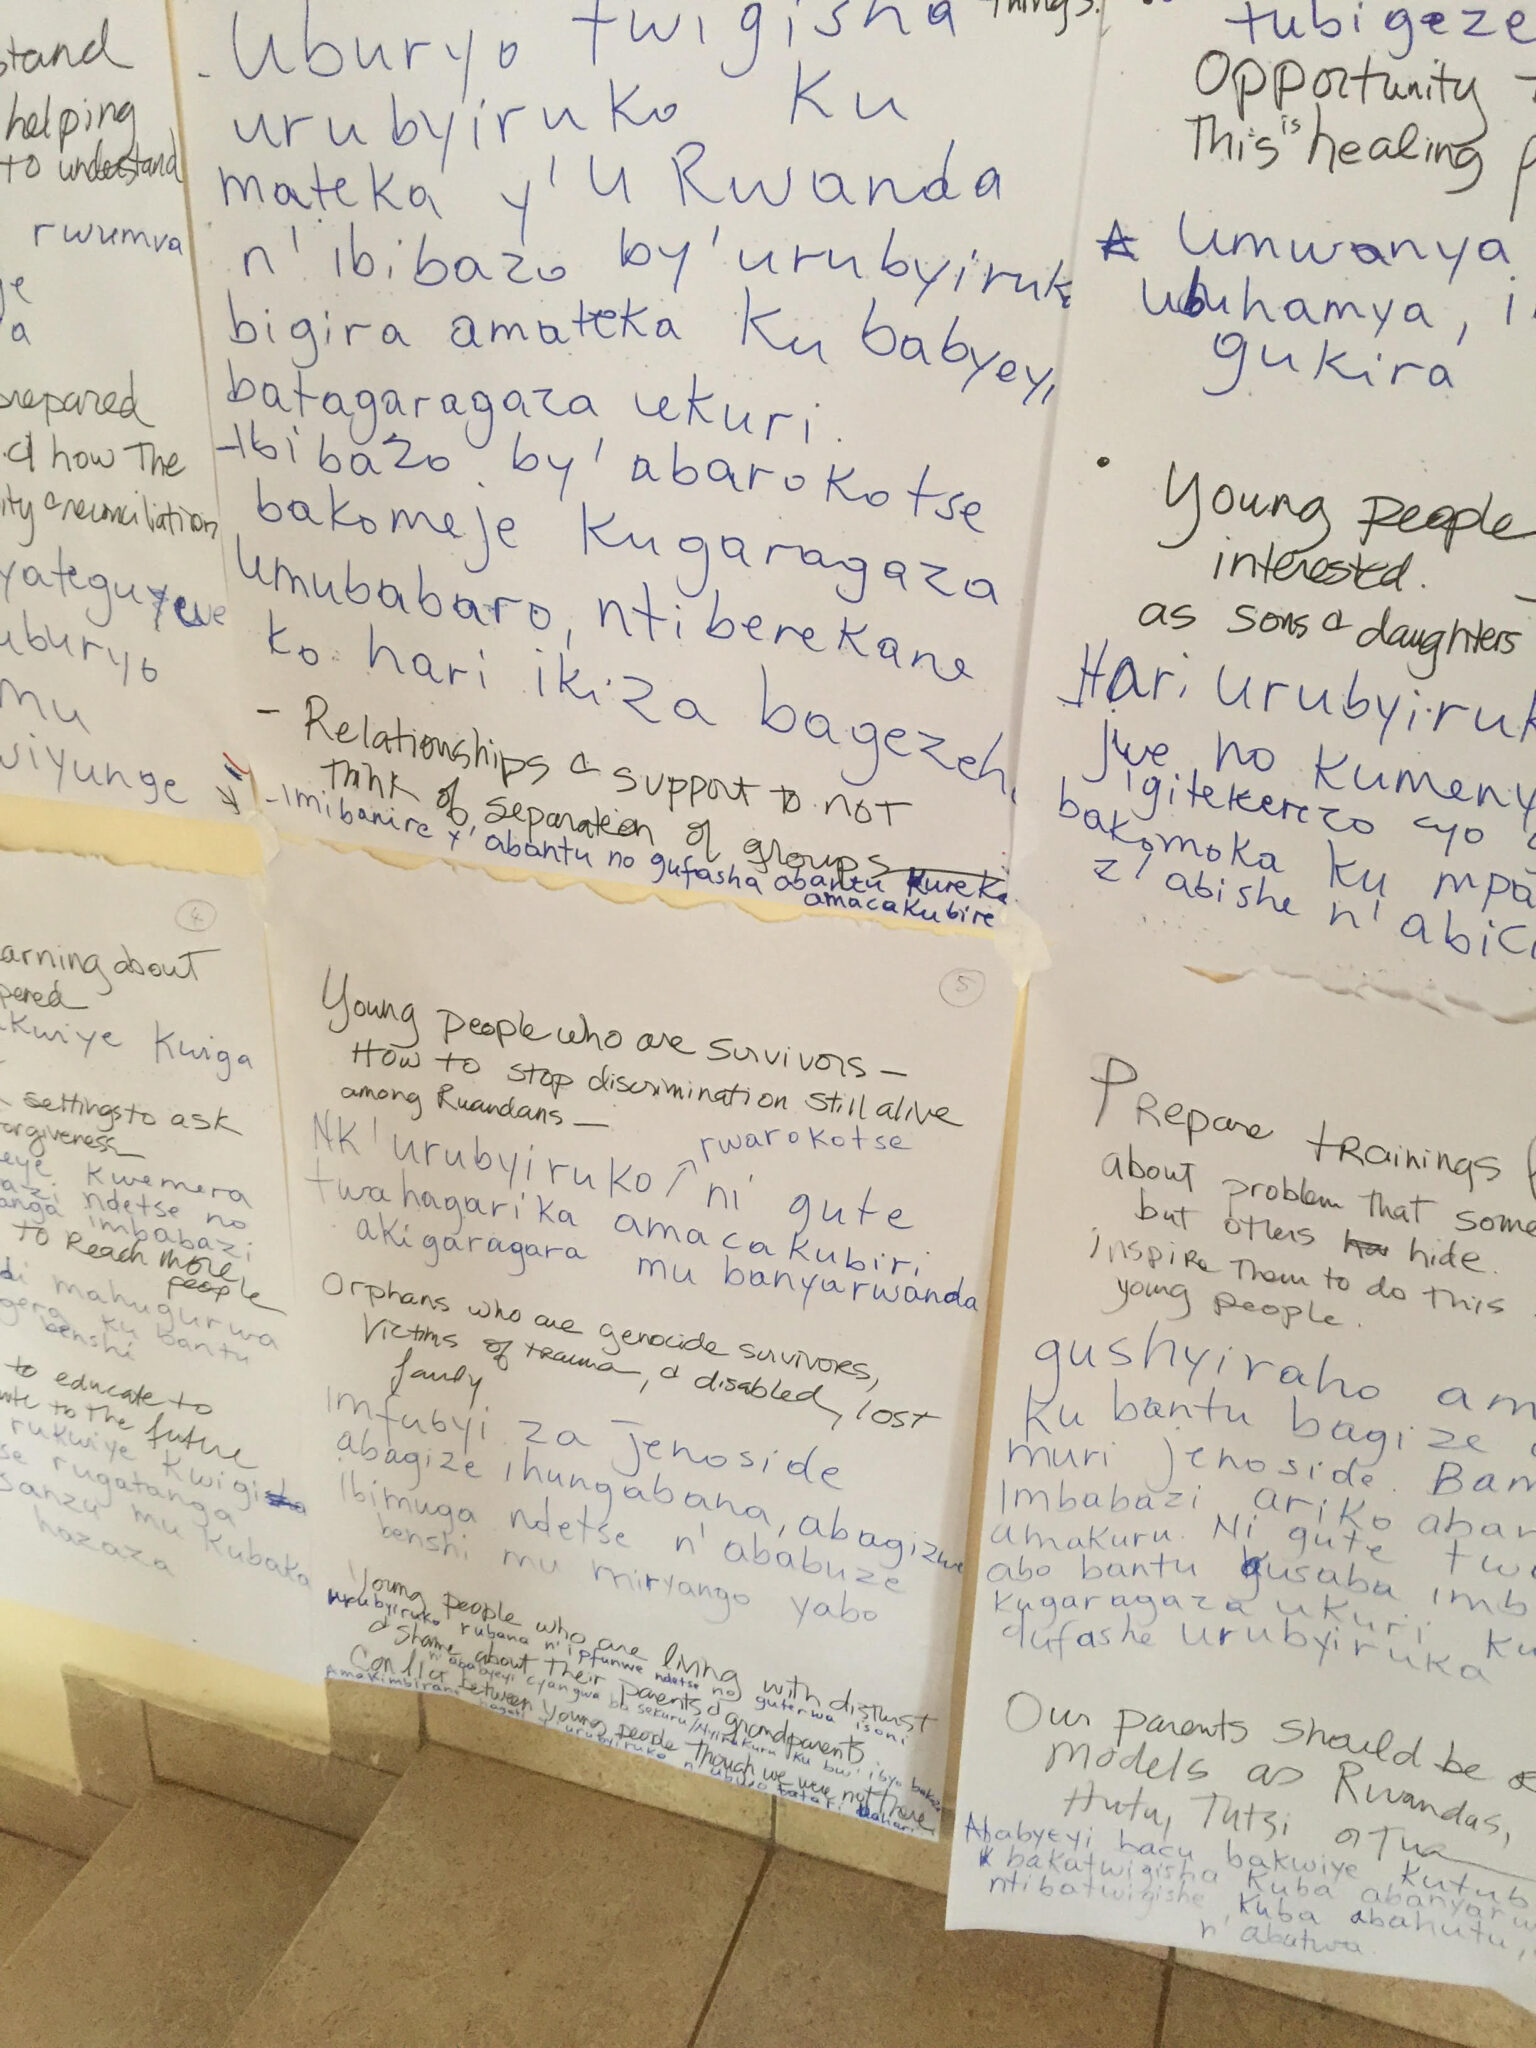 stand
helping
to understand
rwumva
prepared
how The
ity & reconciliation
uburyo
mu
Things.
- Uburyo twigisha
urubyiruko ku
mateka y'u Rwanda
n' ibibazo by'urubyiruk
bigira amateka ku babyeyi
batagaragaza ukuri.
- Ibibazo by' abarokotse
bakomeje kugaragaza
umubabaro, ntiberekane
ko hari ikiza bagezeh
- Relationships & support to not
think of separation of groups
- Imibanire y' abantu no gufasha abantu kureka
amacakubire
tubigeze
Opportunity
This is healing
Umwanya
ubuhamya, i
gukira
• Young people
interested.
as sons & daughters
Hari urubyiruk
jwe no kumeny
igitekerezo cyo
bakomoka ku mpa
z' abishe n' abic
4
arning about
pered
kwiye kwiga
settings to ask
forgiveness
kwemera
ndetse no
anga imbabazi
to Reach more
people
mahugurwa
gera ku bantu
benshi
to educate to
to the future
rukwiye kwigi
se rugatanga
sanzu mu kubaka
hazaza
5
Young people who are survivors —
How to stop discrimination still alive
among Rwandans —
Nk'urubyiruko rwarokotse ni gute
twahagarika amacakubiri
akigaragara mu banyarwanda
Orphans who are genocide survivors,
Victims of trauma, & disabled, lost
family
Imfubyi za jenoside
abagize ihungabana, abagizwe
ibimuga ndetse n' ababuze
benshi mu miryango yabo
Young people who are living with distrust
urubyiruko rubana n' ipfunwe ndetse no guterwa isoni
& shame about their parents & grandparents.
n' ababyeyi cyangwa ba sekuru/Nyirakuru ku bw' ibyo bakoze
Conflict between young people though we were not there
Amakimbirane hagati y' urubyiruko n' ubwo tutari duhari
Prepare trainings
about problem that some
but others hide.
inspire them to do this
young people.
gushyiraho am
ku bantu bagize
muri jenoside. Bam
Imbabazi ariko aban
amakuru. Ni gute twa
abo bantu gusaba imb
kugaragaza ukuri ku
dufashe urubyiruka
Our parents should be
models as Rwandas,
Hutu, Tutsi or Twa
Ababyeyi bacu bakwiye kutub
bakatwigisha kuba abanyarw
ntibatwigishe kuba abahutu,
n' abatwa.